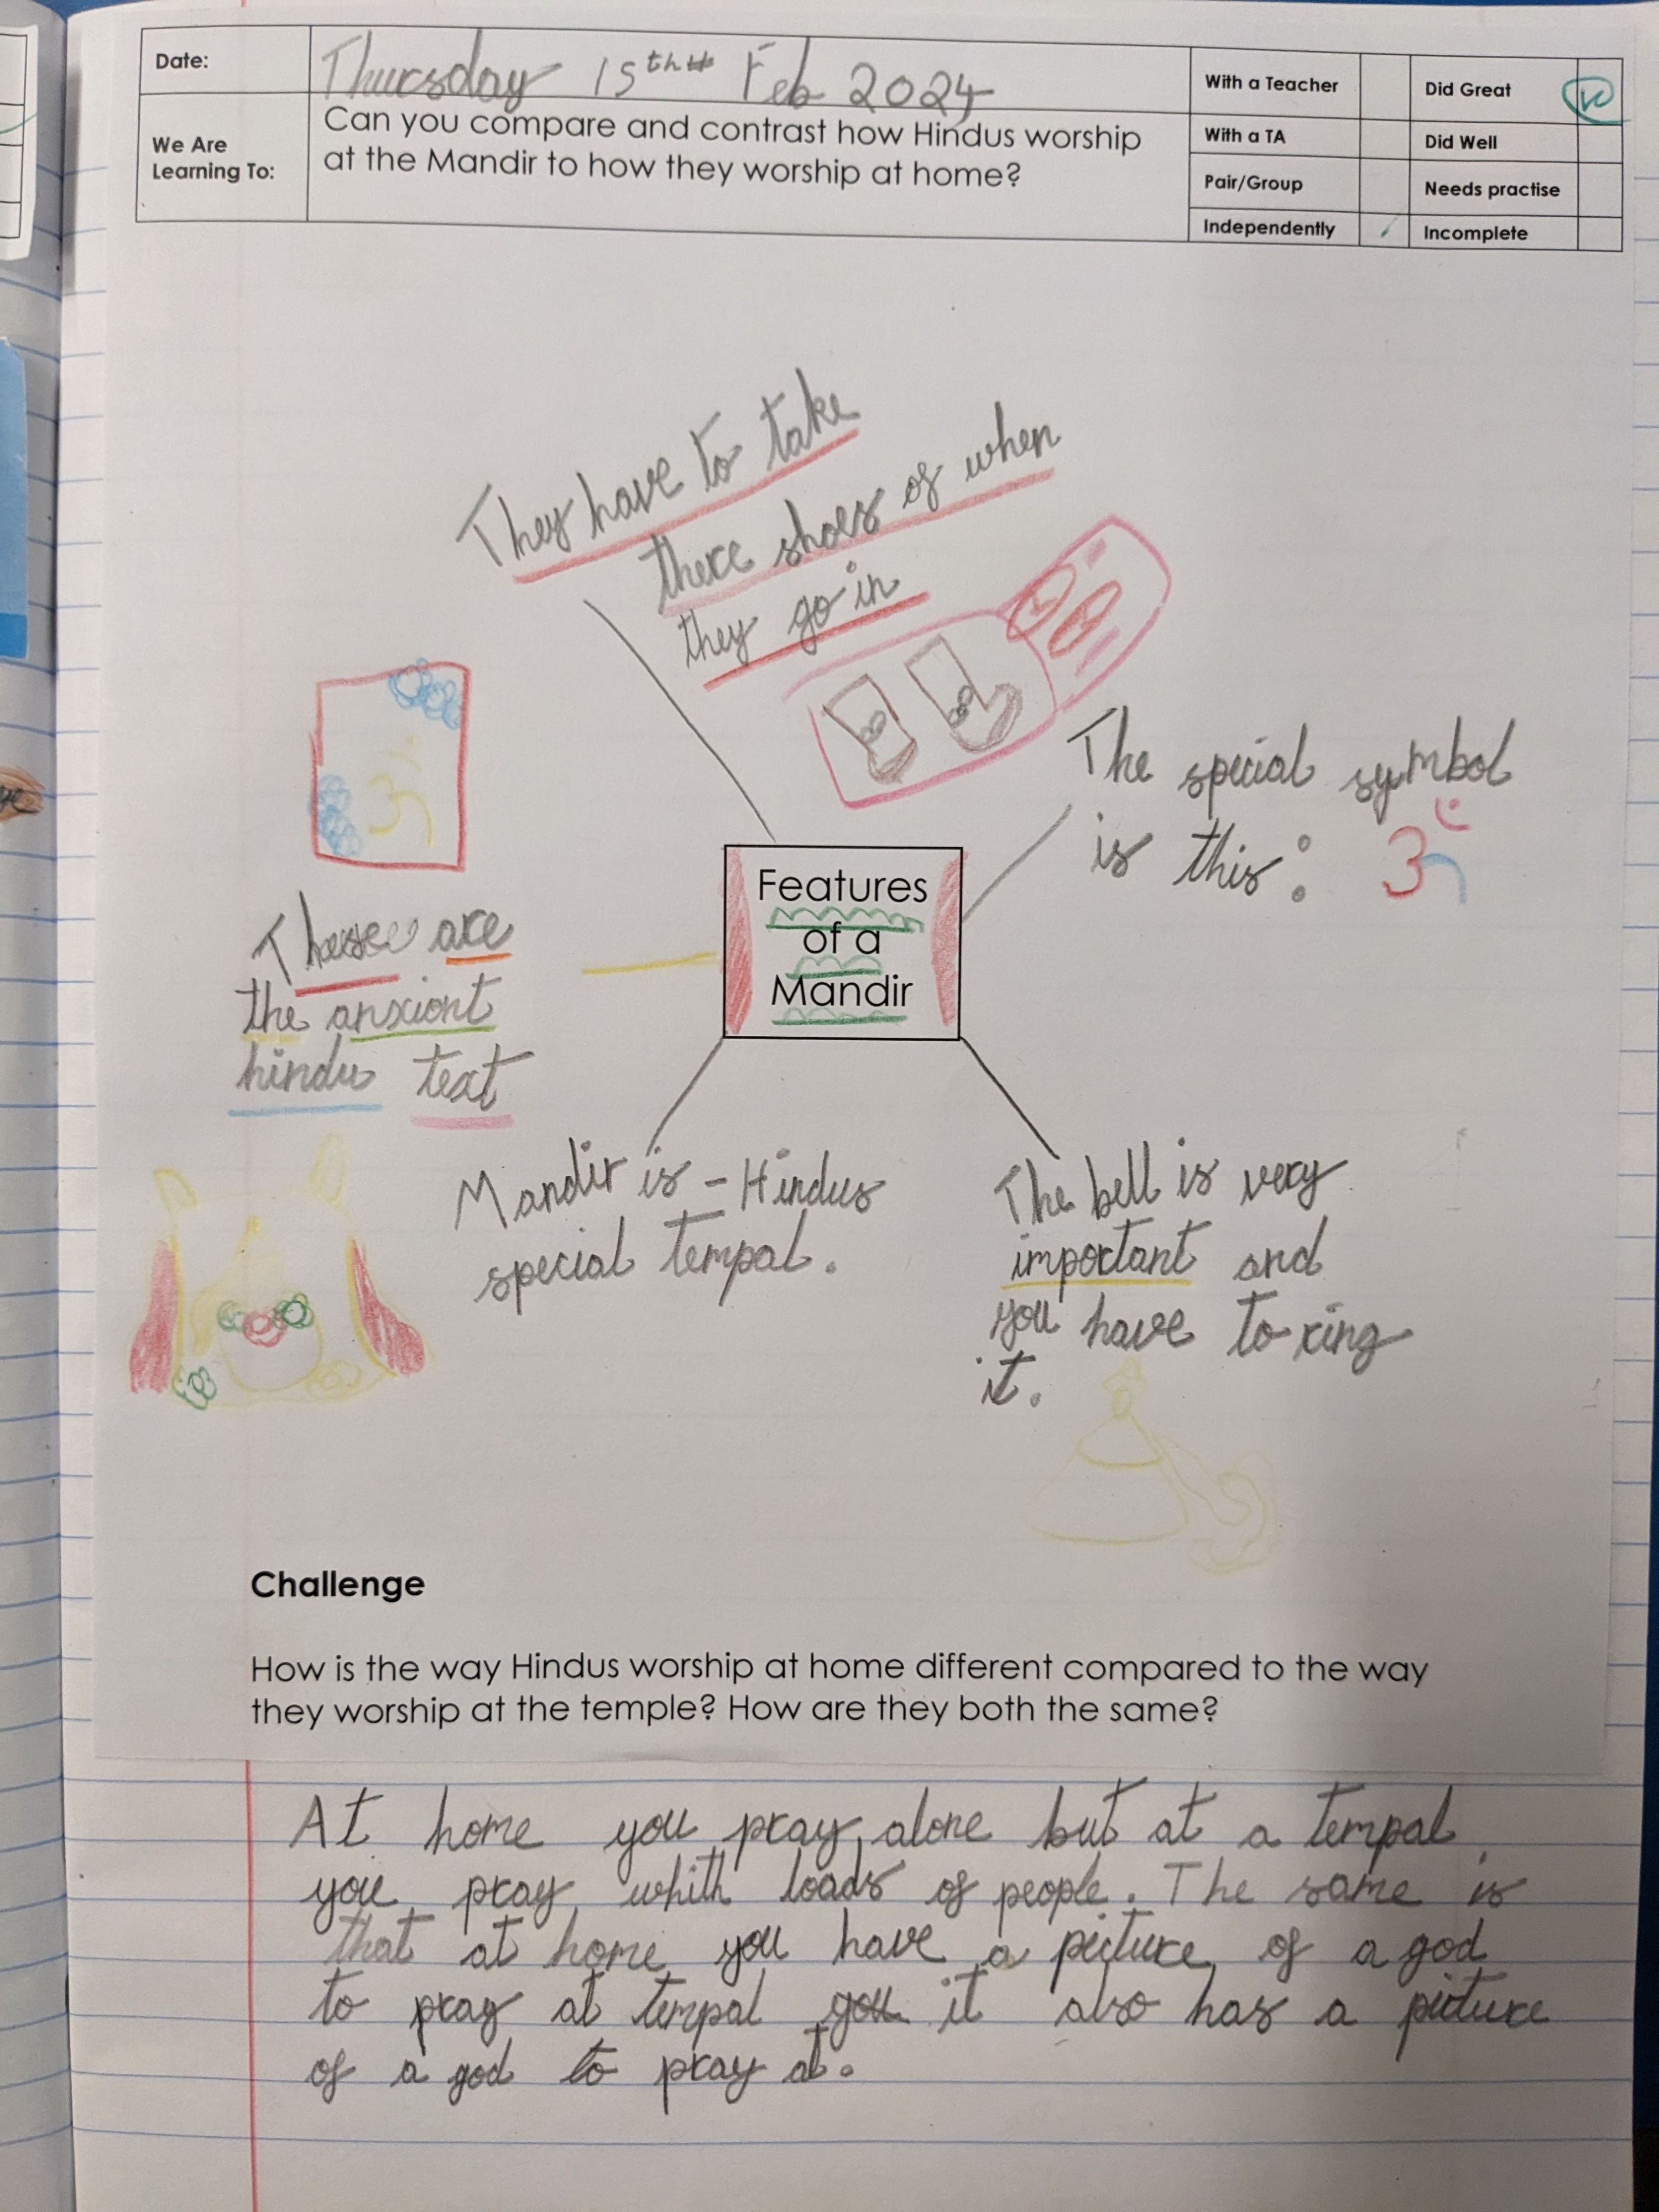 Date:
Thursday 15th Feb 2024
We Are
Learning To:
Can you compare and contrast how Hindus worship
at the Mandir to how they worship at home?
With a Teacher
Did Great
With a TA
Did Well
Pair/Group
Needs practise
Independently
Incomplete
They have to take
there shoes of when
they go in
The special symbol
is this: ॐ
Features
of a
Mandir
These are
the anxiont
hindu text
ॐ
Mandir is - Hindus
special tempal.
The bell is very
important and
you have to ring
it.
Challenge
How is the way Hindus worship at home different compared to the way
they worship at the temple? How are they both the same?
At home you pray alone but at a tempal
you pray whith loads of people. The same is
that at home you have a picture of a god
to pray at tempal you it also has a picture
of a god to pray at.